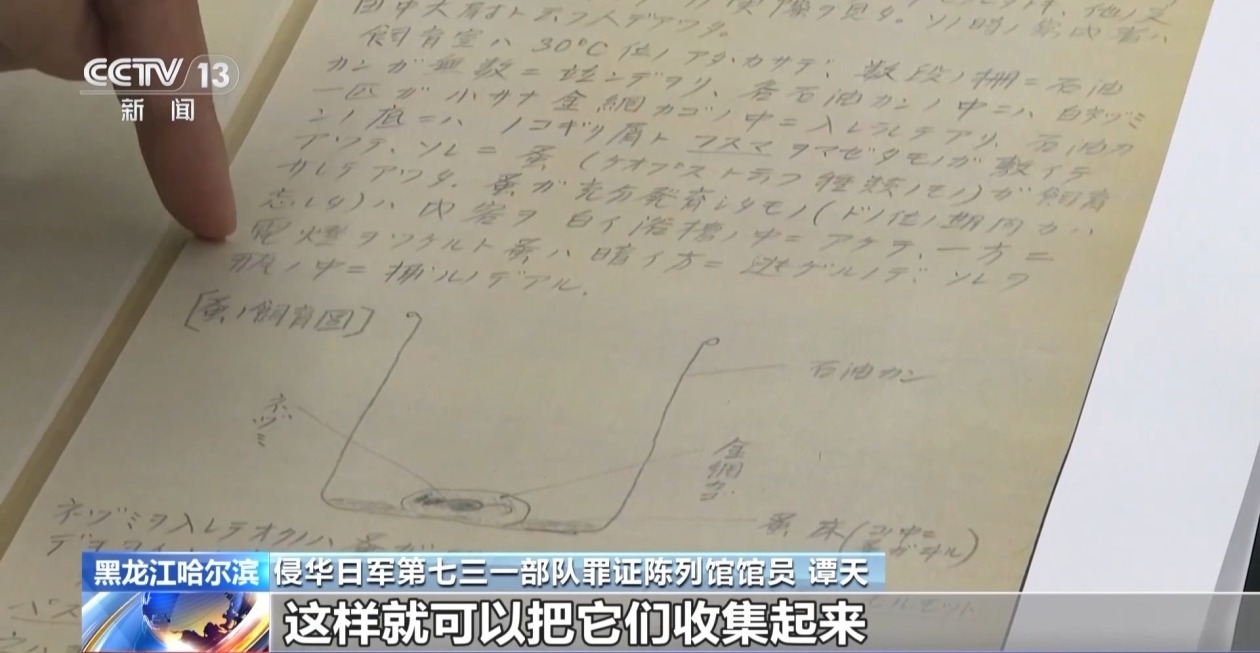 CCTV 13
新闻
飼育室ハ30°C位ノアタカサデ、数段ノ棚ニ石油
カンガ無数ニ並ンデヲリ、各石油カンノ中ニハ白ネヅミ
一匹ガ小サナ金網カゴノ中ニ入レラレテアリ、石油カ
ンノ底ニハノコギリ屑トフスマヲマゼタモノガ敷イテ
アツテ、ソレニ蚤(ケオプストラフ種類ノモノ)ガ飼育
サレテアツタ。蚤ガ充分発育シタモノ(ドノ位ノ期間カハ
忘レタ)ハ内容ヲ白イ浴槽ノ中ニアケテ、一方ニ
電燈ヲツケルト蚤ハ暗イ方ニ逃ゲルノデ、ソレヲ
瓶ノ中ニ捕ルノデアル。
[蚤ノ飼育図]
石油カン
ネヅミ
金網カゴ
蚤床
ネヅミヲ入レテオクノハ蚤ガ
黑龙江哈尔滨
侵华日军第七三一部队罪证陈列馆馆员 谭天
这样就可以把它们收集起来